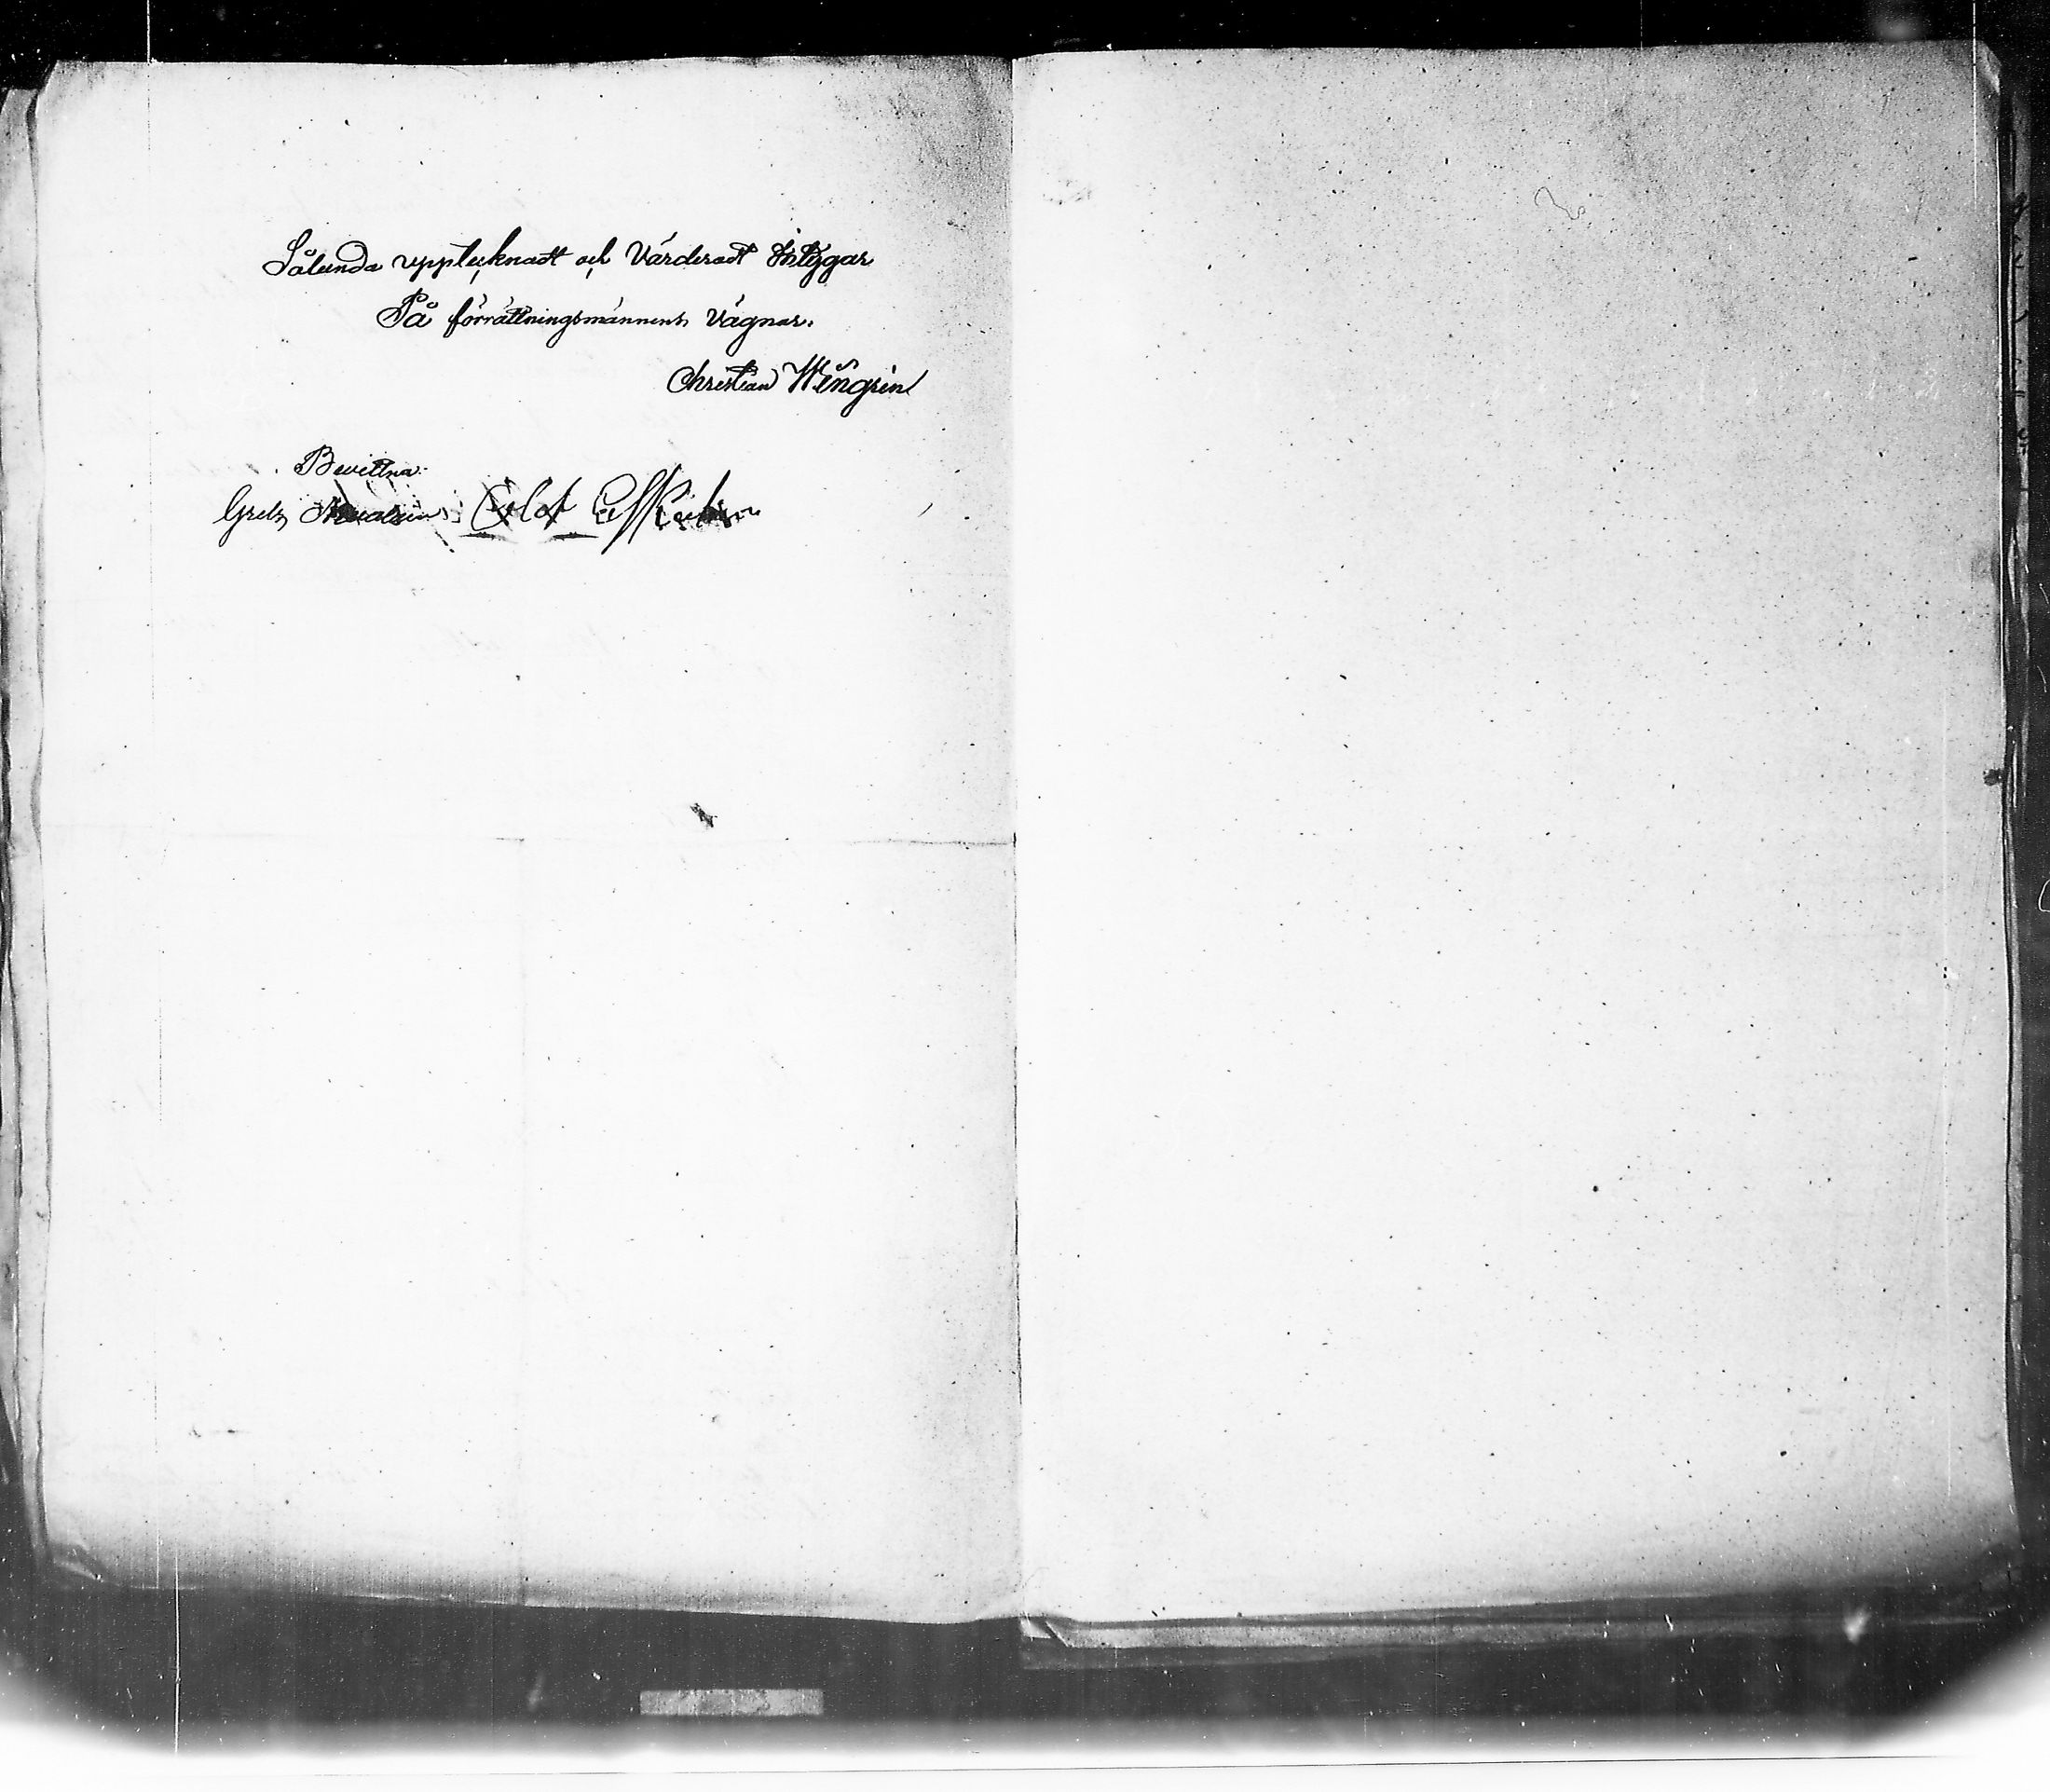 Sålunda upptecknadt och Värderadt Intygar
På förrättningsmännens Vägnar.
Christian Wengrén
Bevittna:
Olof